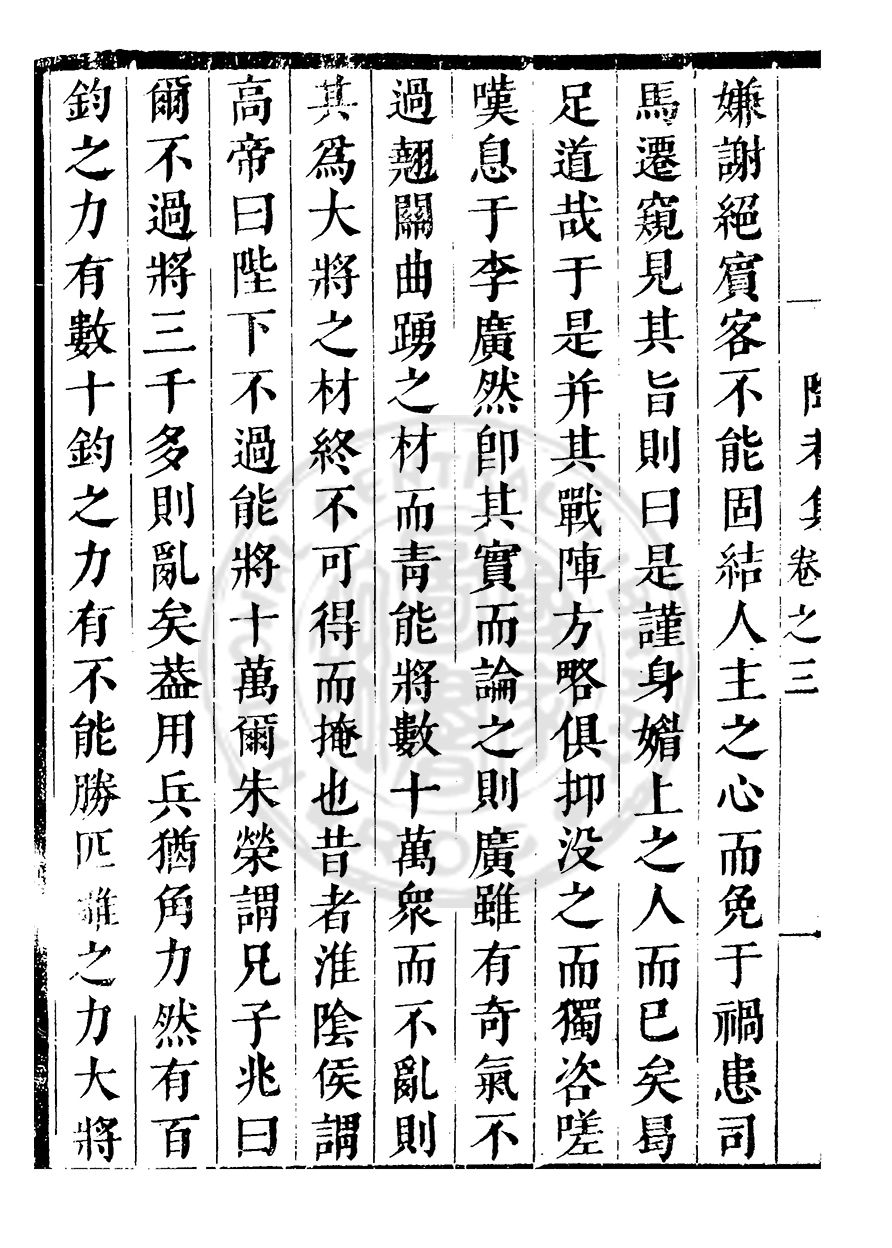 卷之三
嫌謝絕賓客不能固結人主之心而免于禍患司
馬遷窺見其旨則曰是謹身媚上之人而已矣曷
足道哉于是并其戰陣方略俱抑没之而獨咨嗟
嘆息于李廣然卽其實而論之則廣雖有奇氣不
過翹關曲踴之材而青能將數十萬衆而不亂則
其爲大將之材終不可得而掩也昔者淮陰侯謂
高帝曰陛下不過能將十萬爾朱榮謂兄子兆曰
爾不過將三千多則亂矣葢用兵猶角力然有百
鈞之力有數十鈞之力有不能勝匹雛之力大將